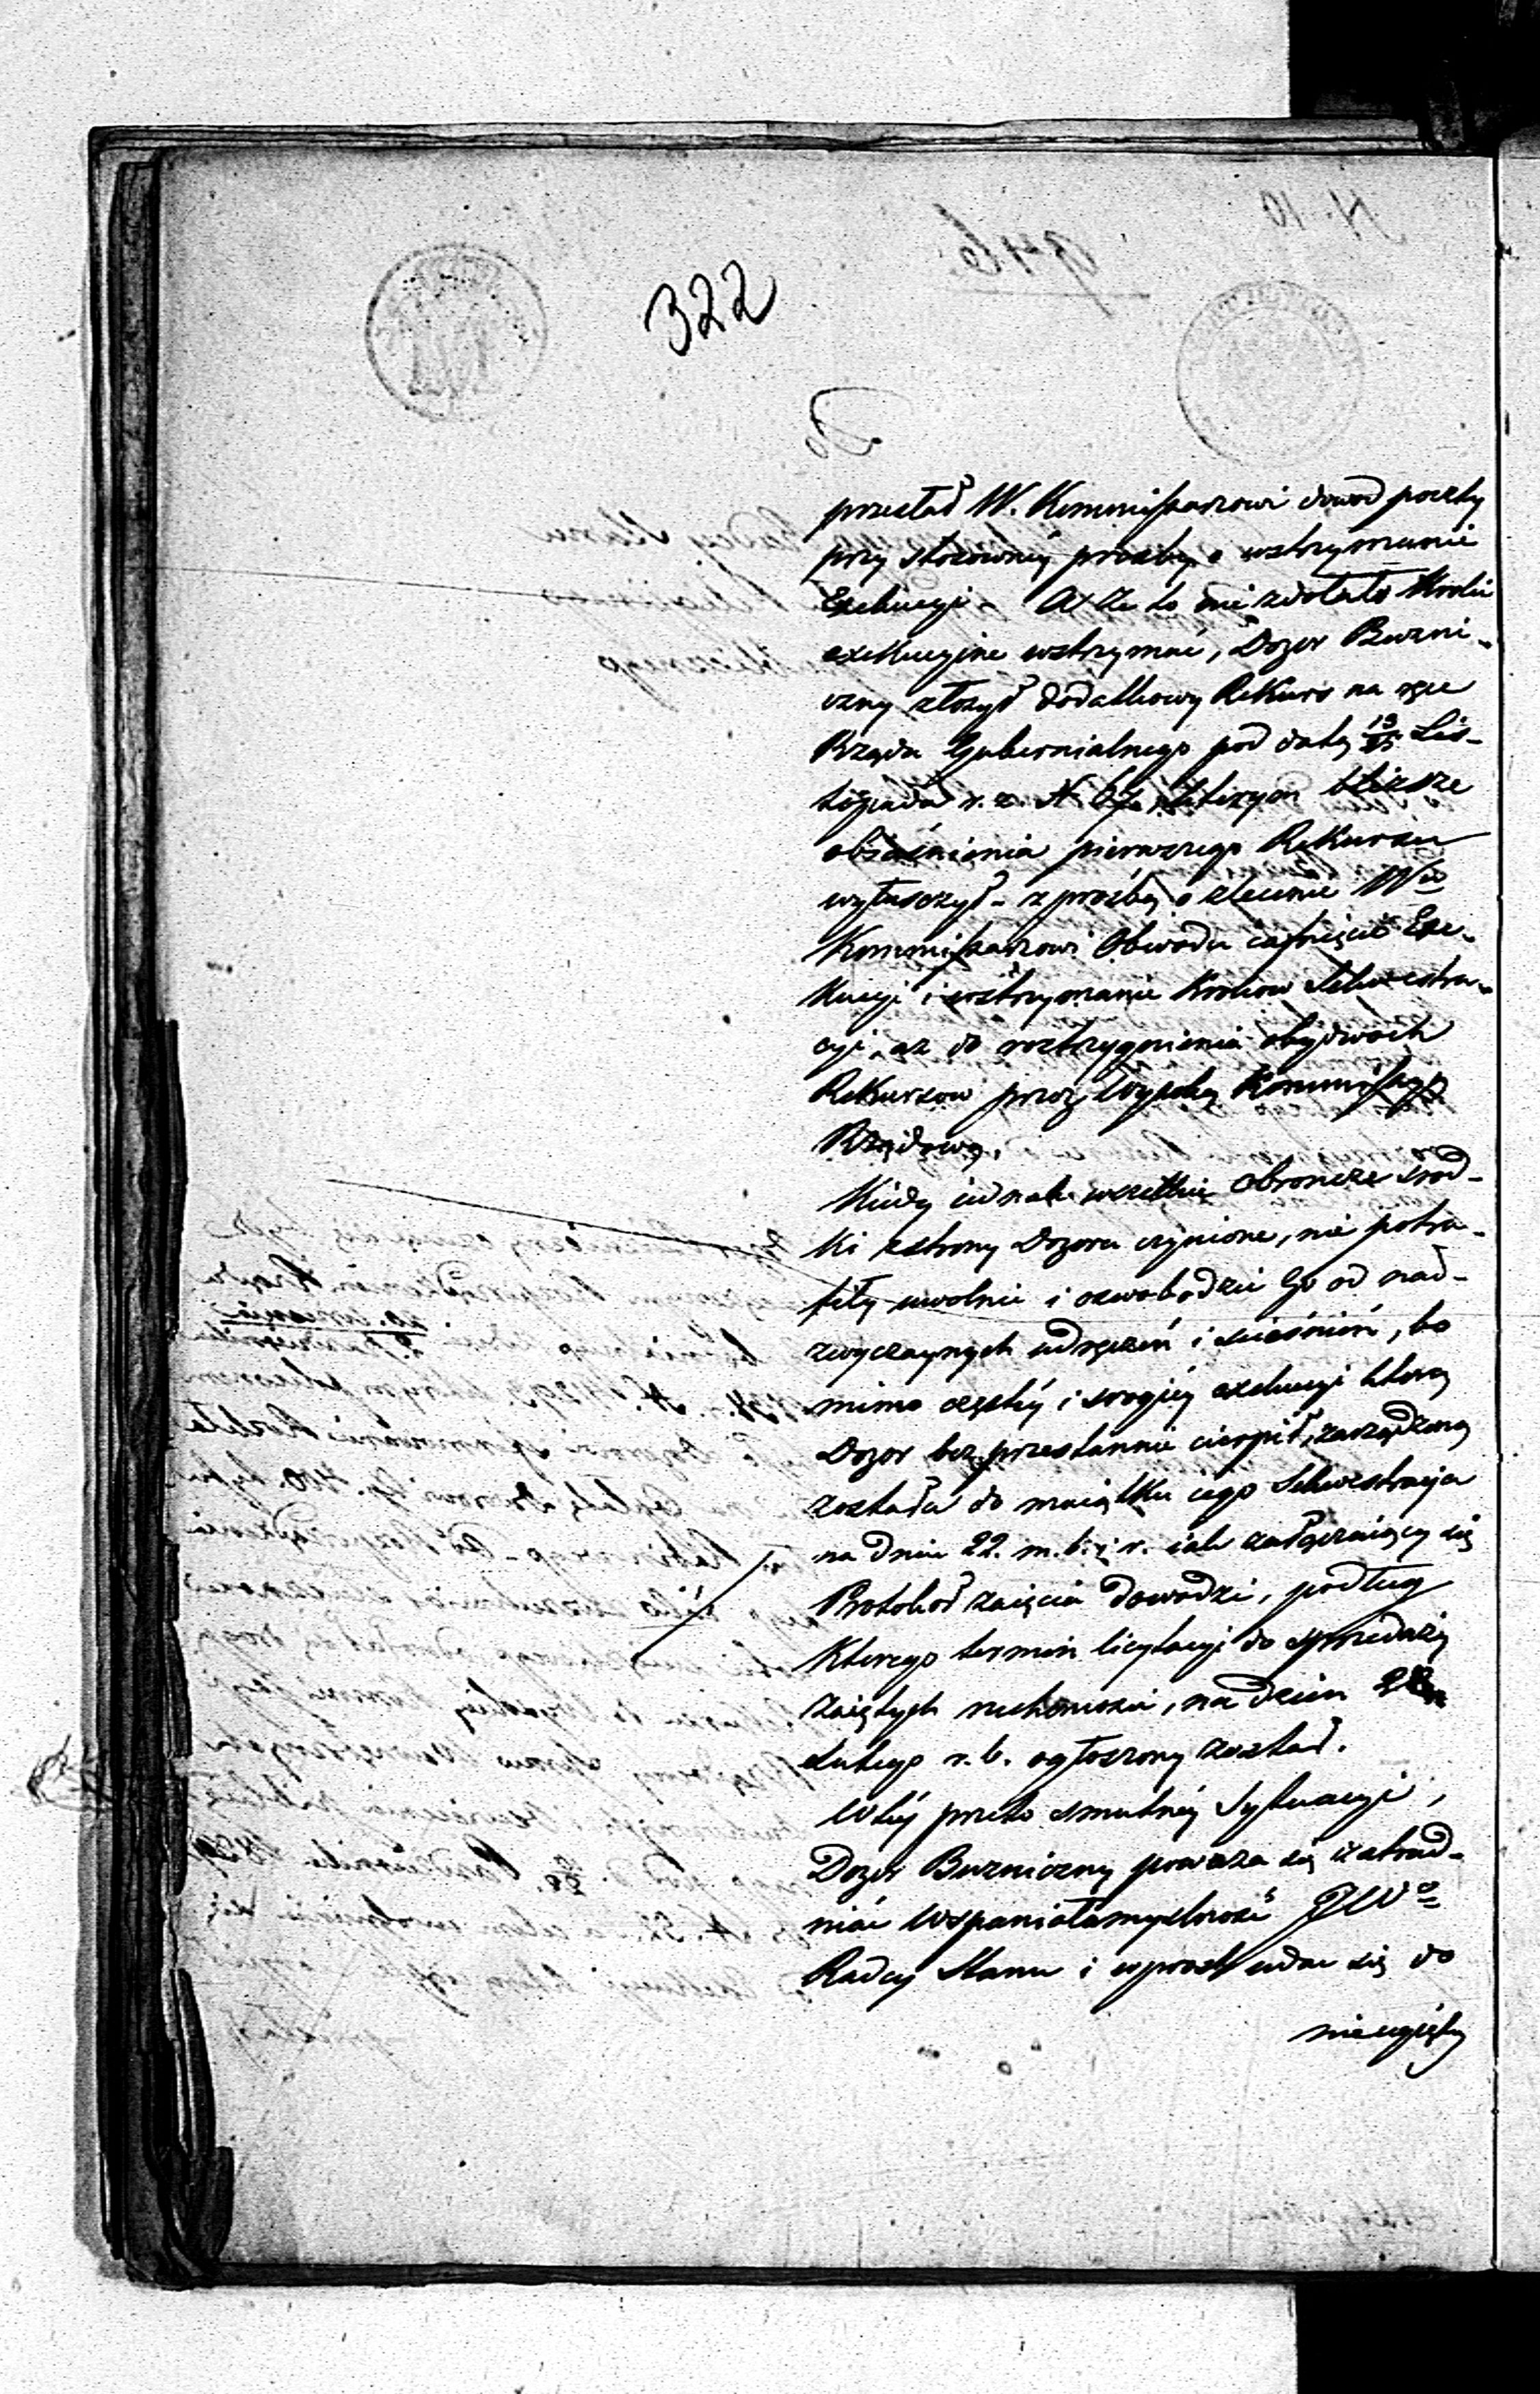 322
przesłał W. Kommissarzowi dowod poczty
przy stosowney prozbie o wstrzymanie
Exekucyi - A że to nie zdołało Kroki
exekucyine wstrzymać, Dozor Bozni-
czny złożył dodatkowy Rekurs na ręce
Rządu Gubernialnego pod datą 13/25 Lis-
topada r. z. N 67, w ktorym bliższe
obiaśnienia pierwszego Rekursu
wyłuszczył - z prozbą o zlecenie Wmu
Kommissarzowi Obwodu cofnięcie Exe-
kucyi i wstrzymanie Krokow Sekwestra-
cyi, aż do rozstrzygnienia obydwoch
Rekursow przez Wysoką Kommissyą
Rządową.
Kiedy iednak wszelkie obroncze srod-
ki ze strony Dozoru czynione, nie potra-
fiły uwolnić i oswobodzić Go od nad-
zwyczaynych udręczeń i ucieśnień, bo
mimo częstey i srogiey exekucyi ktorą
Dozor bezprzestannie cierpił, zarządzoną
została do maiątku iego Sekwestracya
na dniu 22. m. b. i r. iak załączaiący się
Protokoł zaięcia dowodzi, podług
Ktorego termin licytacyi do sprzedaży
zaiętych ruchomości, na dzien
Lutego r. b. ogłoszony został.
W tey przeto smutney Sytuacyi,
Dozor Bozniczny poważa się zatrud-
niać Wspaniałomyslność JWo
Radcy Stanu i wprost udać się do
nieugięty